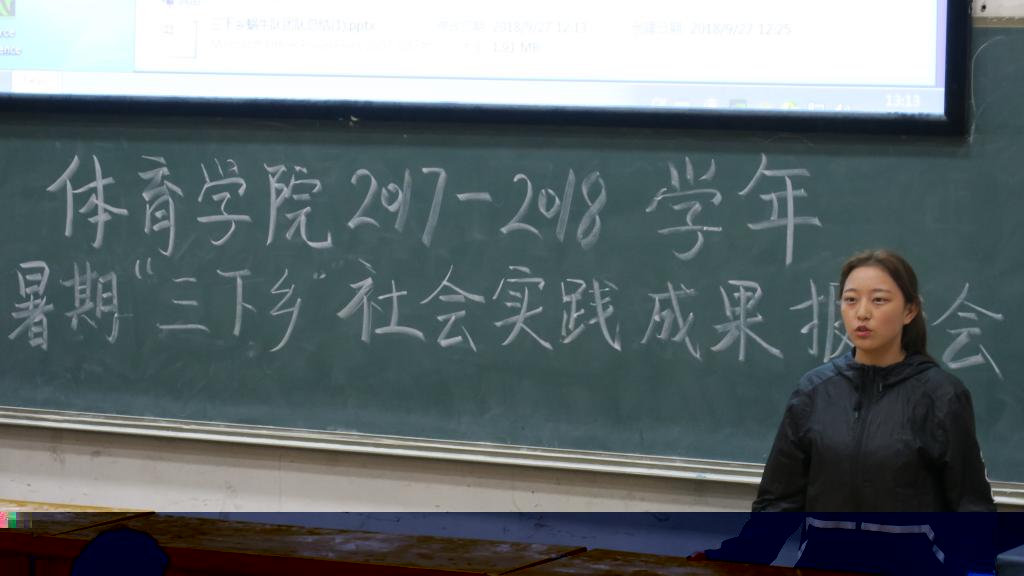 三下乡蜗牛队团队总结(1).pptx 修改日期: 2018/9/27 12:17 创建日期: 2018/9/27 12:25
1.91 MB
13:13
体育学院2017-2018 学年
暑期“三下乡”社会实践成果报会